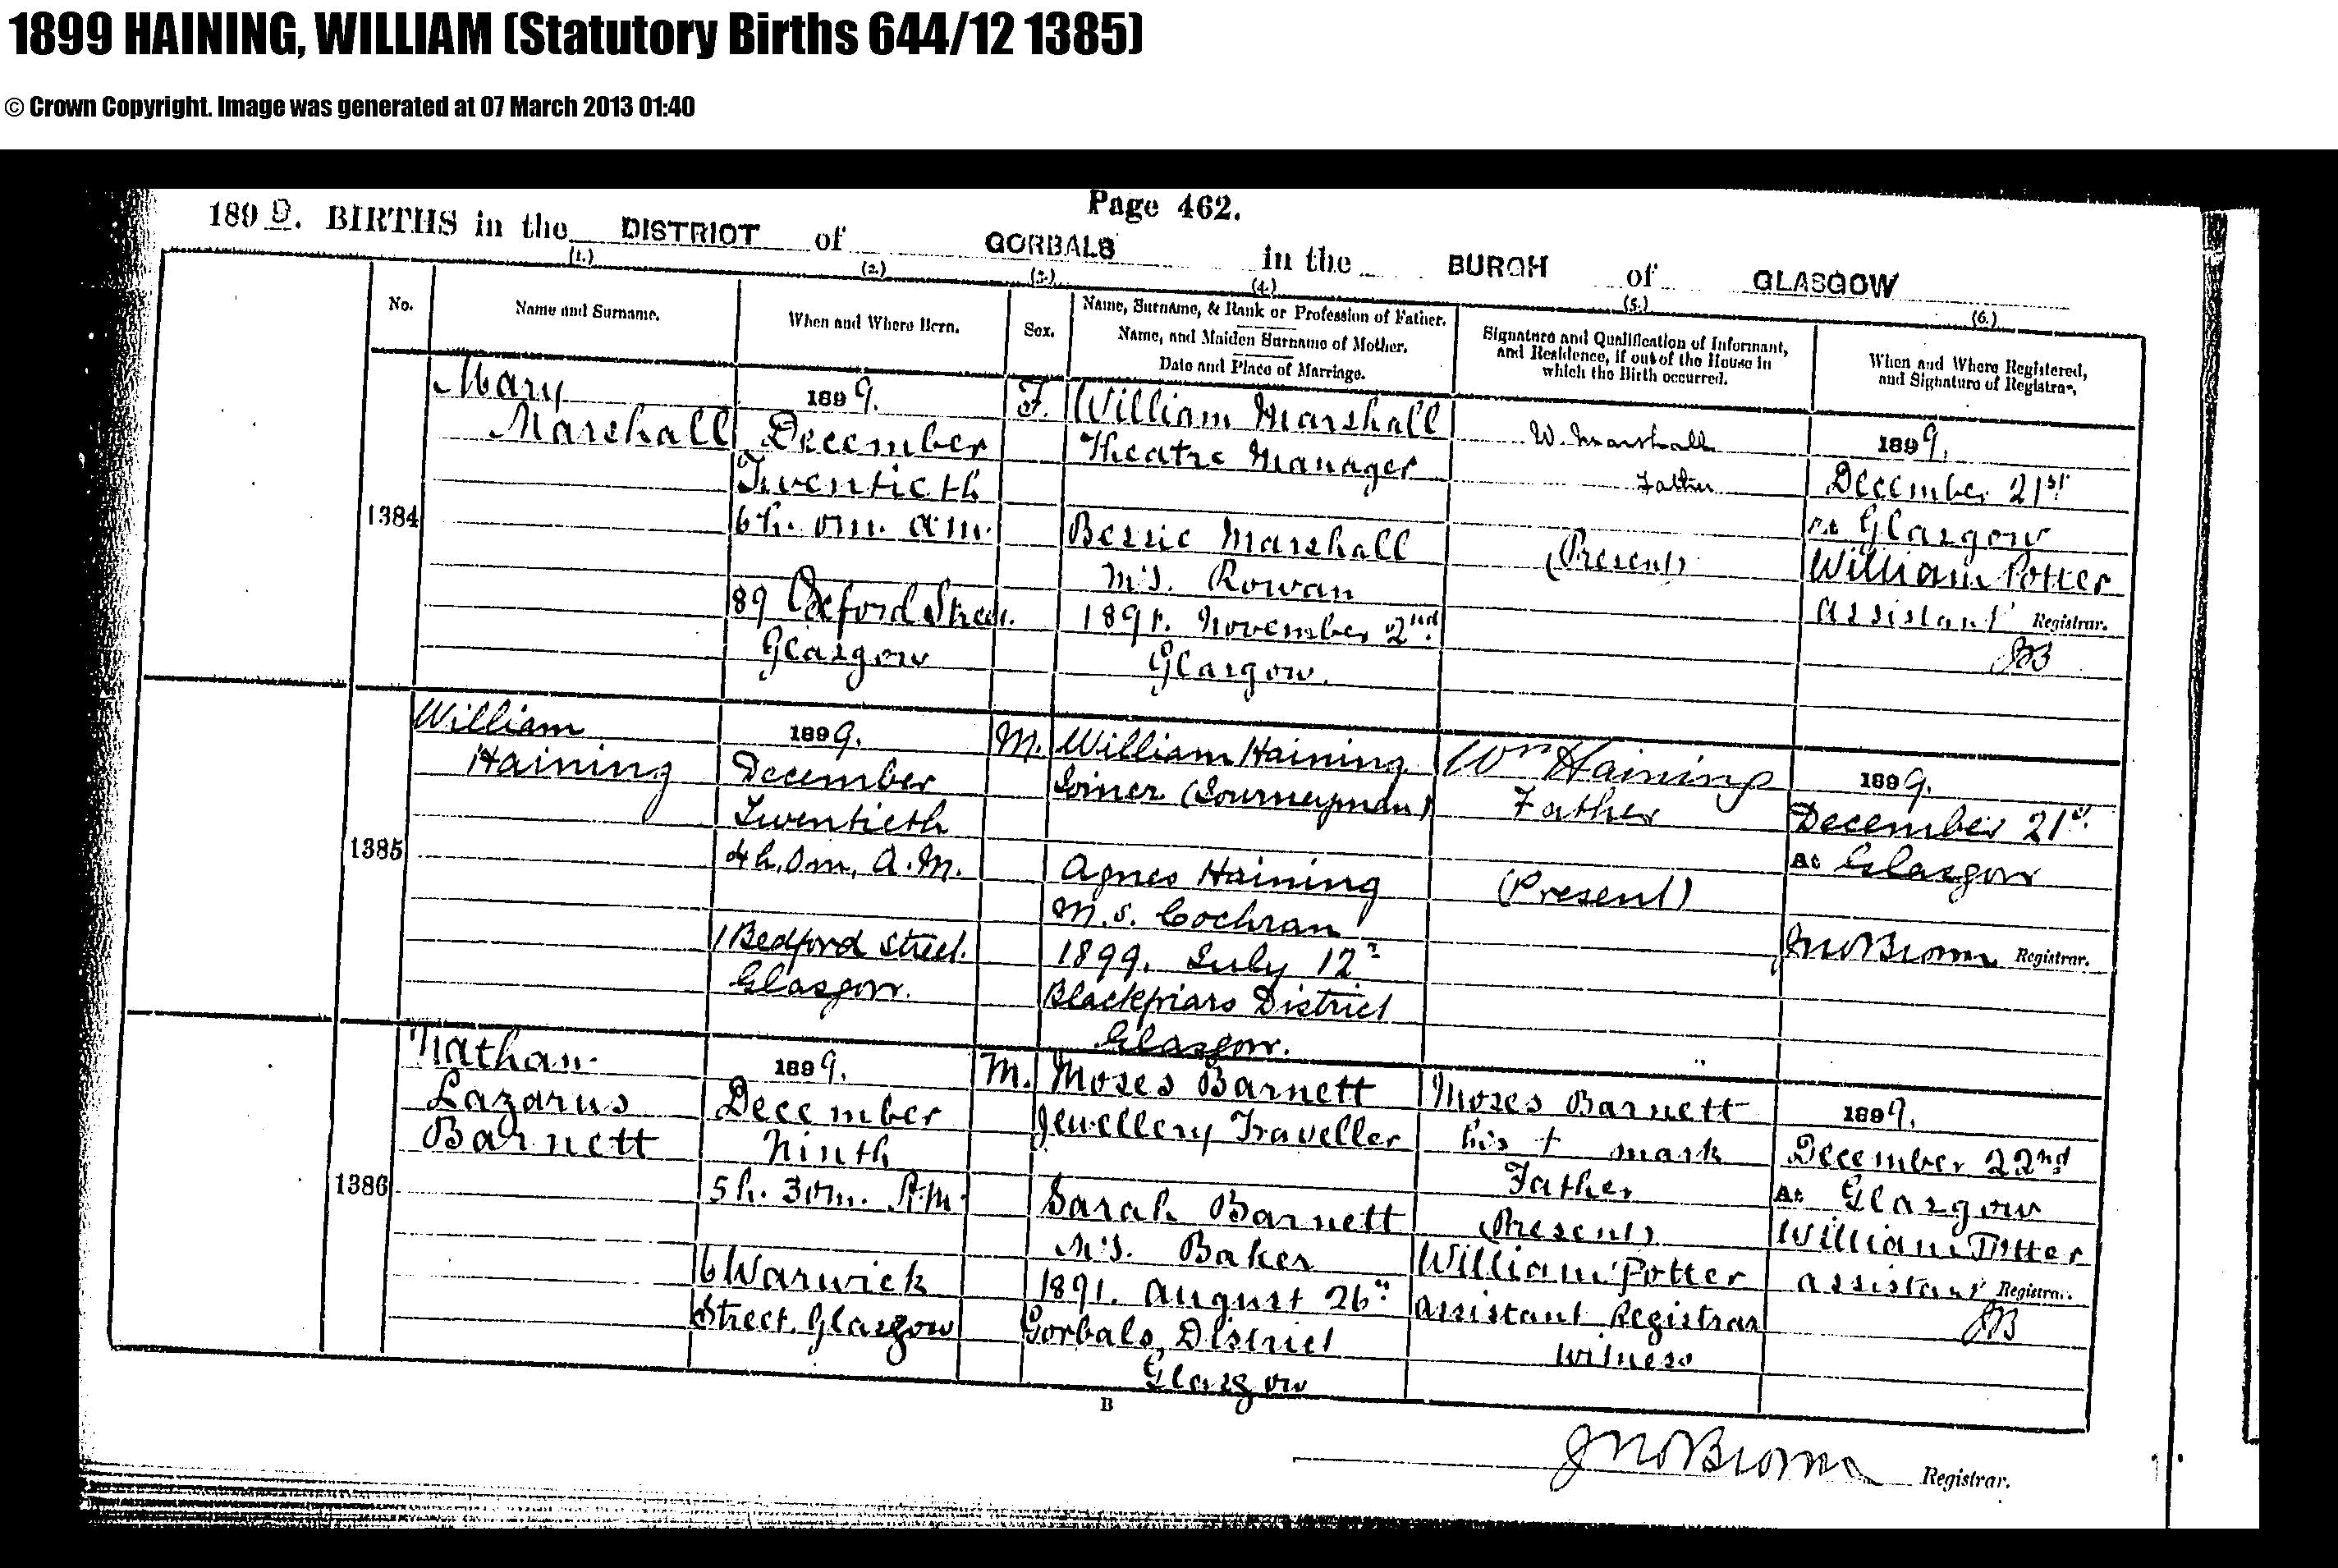 1899 HAINING, WILLIAM (Statutory Births 644/12 1385)
© Crown Copyright. Image was generated at 07 March 2013 01:40
Page 462.
1899. BIRTHS in the DISTRICT of GORBALS in the BURGH of GLASGOW
(1.) (2.) (3.) (4.) (5.) (6.)
No.
Name and Surname.
When and Where Born.
Sex.
Name, Surname, & Rank or Profession of Father.
Name, and Maiden Surname of Mother.
Date and Place of Marriage.
Signature and Qualification of Informant,
and Residence, if out of the House in
which the Birth occurred.
When and Where Registered,
and Signature of Registrar.
1384
Mary
Marshall
1899.
December
Twentieth
6h. 0m. A.M.
89 Oxford Street
Glasgow
F.
William Marshall
Theatre Manager
Bessie Marshall
M.S. Rowan
1891. November 2nd
Glasgow.
W. Marshall
Father
(Present)
1899.
December 21st
At Glasgow
William Potter
Assistant Registrar.
JB
1385
William
Haining
1899.
December
Twentieth
4h. 0m. A.M.
1 Bedford Street.
Glasgow.
M.
William Haining
Joiner (Journeyman)
Agnes Haining
M.S. Cochran
1899. July 12th
Blackfriars District
Glasgow.
Wm Haining
Father
(Present)
1899.
December 21st
At Glasgow
Jno Brown Registrar.
1386
Nathan
Lazarus
Barnett
1899.
December
Ninth
5h. 30m. P.M.
6 Warwick
Street, Glasgow
M.
Moses Barnett
Jewellery Traveller
Sarah Barnett
M.S. Baker
1891. August 26th
Gorbals, District
Glasgow
Moses Barnett
his + mark
Father
(Present)
William Potter
Assistant Registrar
Witness
1899.
December 22nd
At Glasgow
William Potter
Assistant Registrar.
JB
B
Jno Brown Registrar.